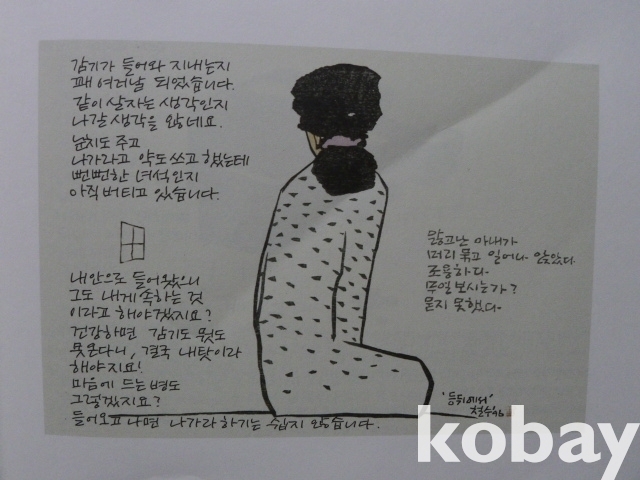 감기가 들어와 지내는지
꽤 여러날 되었습니다.
같이 살자는 생각인지
나갈 생각을 않네요.
눈치도 주고
나가라고 약도 쓰고 했는데
뻔뻔한 녀석인지
아직 버티고 있습니다.
내안으로 들어왔으니
그도 내게 속하는 것
이라고 해야겠지요?
건강하면 감기도 뭣도
못온다니, 결국 내탓이라
해야지요!
마음에 드는 병도
그렇겠지요?
들어오고 나면 나가라 하기는 쉽지 않습니다.
앓고난 아내가
머리 묶고 일어나 앉았다.
조용하다.
무얼 보시는가?
묻지 못했다.
'등뒤에서'
철수96
kobay